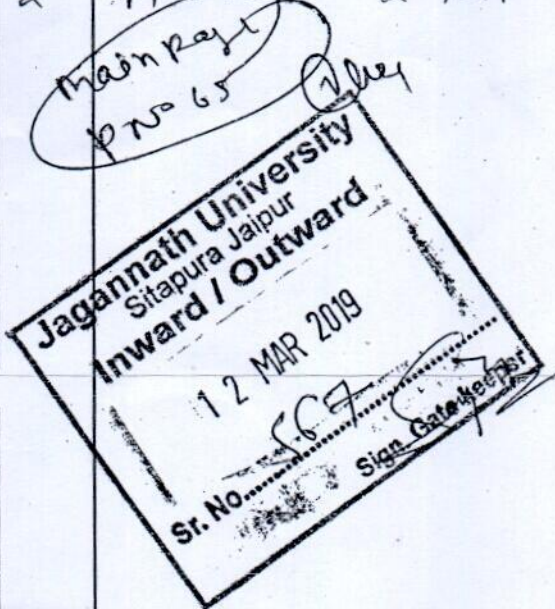 Main Page
P No 65
Jagannath University
Sitapura Jaipur
Inward / Outward
12 MAR 2019
Sr. No. 567
Sign. Gate-keeper